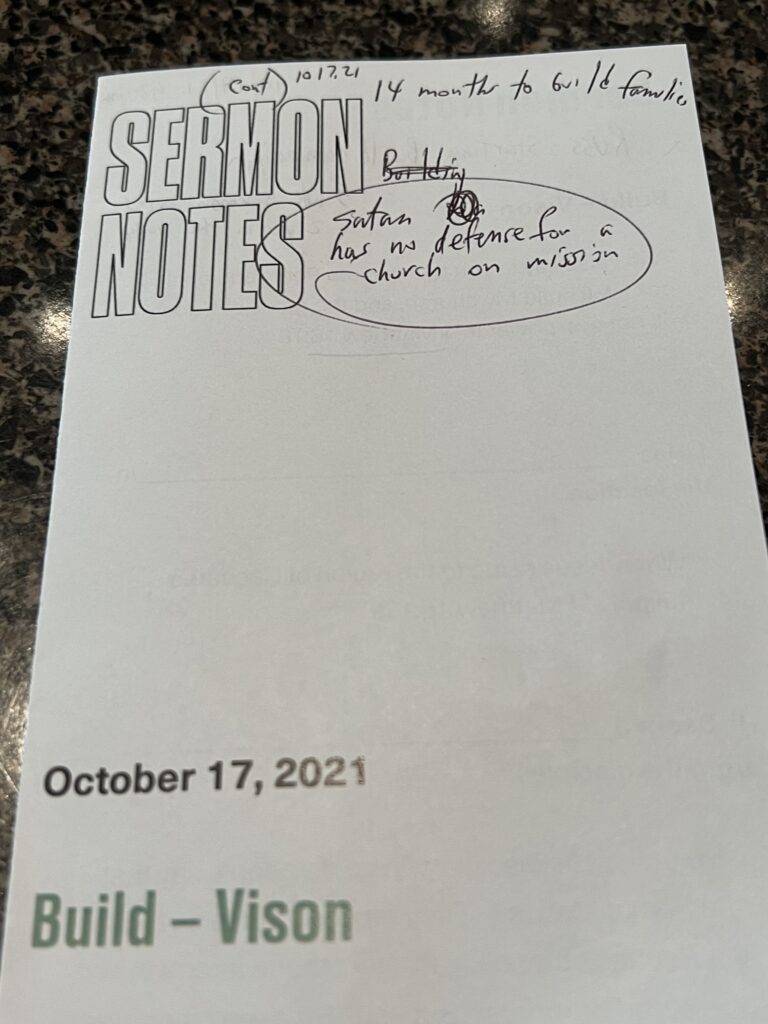 (Cont) 10 17.21
14 months to build families
SERMON
NOTES
Building
Satan
has no defense for a
church on mission
October 17, 2021
Build – Vison